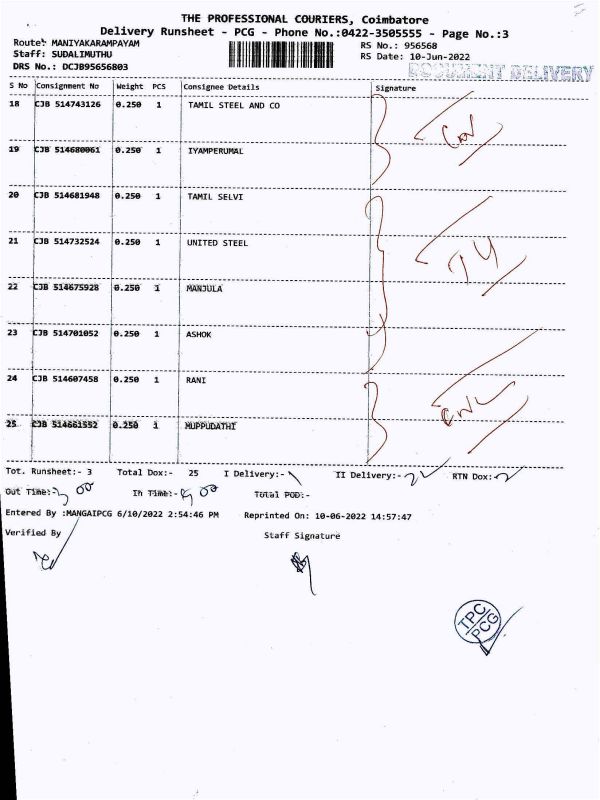 THE PROFESSIONAL COURIERS, Coimbatore
Delivery Runsheet - PCG - Phone No.:0422-3505555 - Page No.:3
Route: MANIYAKARAMPAYAM
RS No.: 956568
Staff: SUDALIMUTHU
RS Date: 10-Jun-2022
DRS No.: DCJB95656803
DOCUMENT DELIVERY
S No Consignment No Weight PCS Consignee Details Signature
18 CJB 514743126 0.250 1 TAMIL STEEL AND CO
19 CJB 514680061 0.250 1 IYAMPERUMAL
20 CJB 514681948 0.250 1 TAMIL SELVI
21 CJB 514732524 0.250 1 UNITED STEEL
22 CJB 514675928 0.250 1 MANJULA
23 CJB 514701052 0.250 1 ASHOK
24 CJB 514607458 0.250 1 RANI
25 CJB 514661552 0.250 1 MUPPUDATHI
Tot. Runsheet:- 3 Total Dox:- 25 I Delivery:- II Delivery:- RTN Dox:-
Out Time:- In Time:- Total POD:-
Entered By :MANGAIPCG 6/10/2022 2:54:46 PM Reprinted On: 10-06-2022 14:57:47
Verified By Staff Signature
TPC
PCG